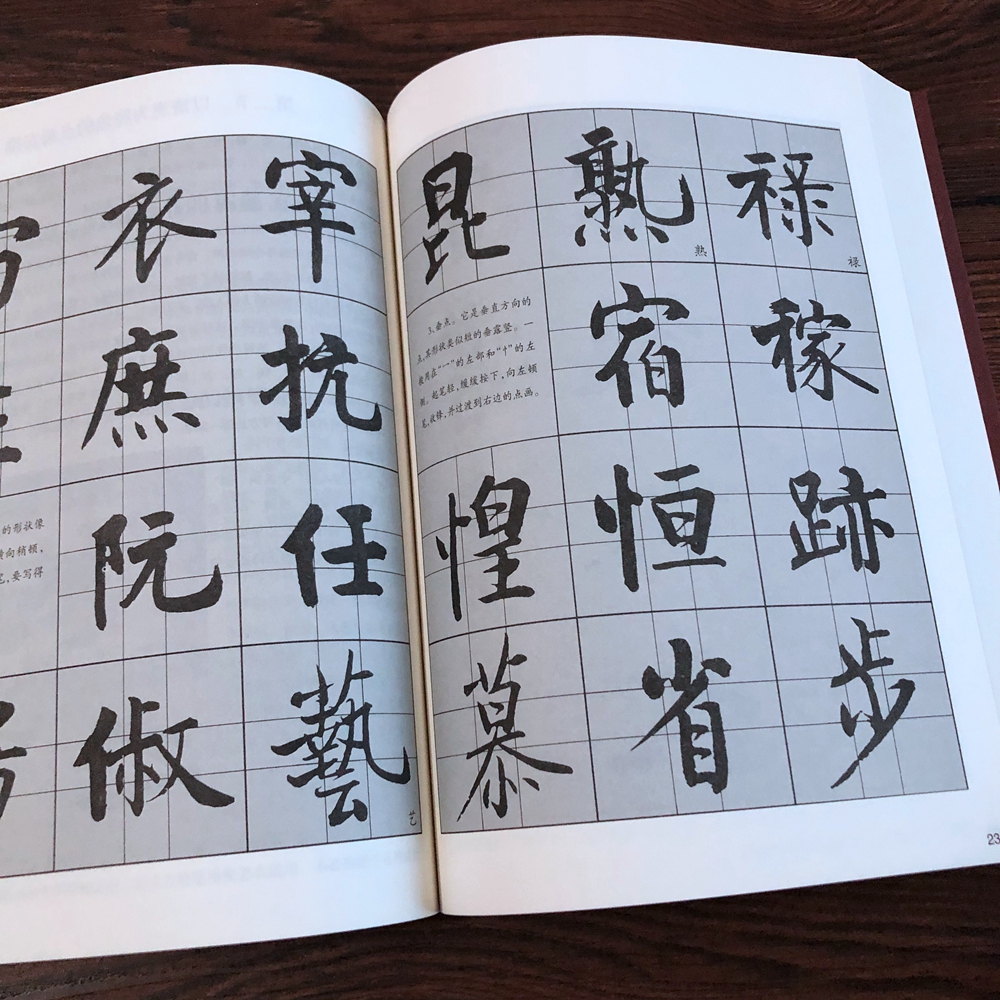 衣 宰
庶 抗
的形状像
向稍顿,
笔,要写得
阮 任
俶 藝
艺
昆 熟 禄
熟 禄
3.垂点。它是垂直方向的
点,其形状类似短的垂露竖。一
般用在“宀”的左部和“忄”的左
侧。起笔轻,缓缓按下,向左顿
笔,收锋,并过渡到右边的点画。
宿 稼
惶 恒 跡
慕 省 步
23